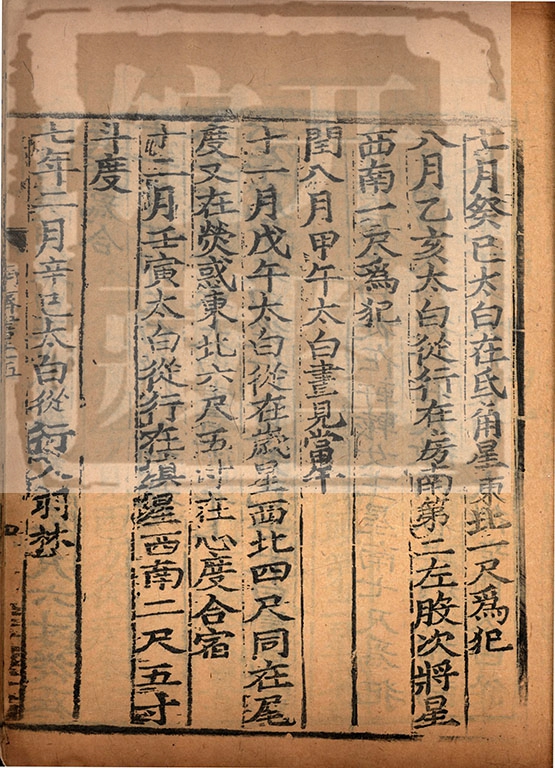 七月癸巳太白在氐角星東北一尺爲犯
八月乙亥太白從行在房南第二左股次將星
西南一尺爲犯
閏八月甲午太白晝見當午
十一月戊午太白從在歲星西北四尺同在尾
度又在熒惑東北六尺五寸在心度合宿
十二月壬寅太白從行在塡星西南二尺五寸
斗度
七年二月辛巳太白從行入羽林